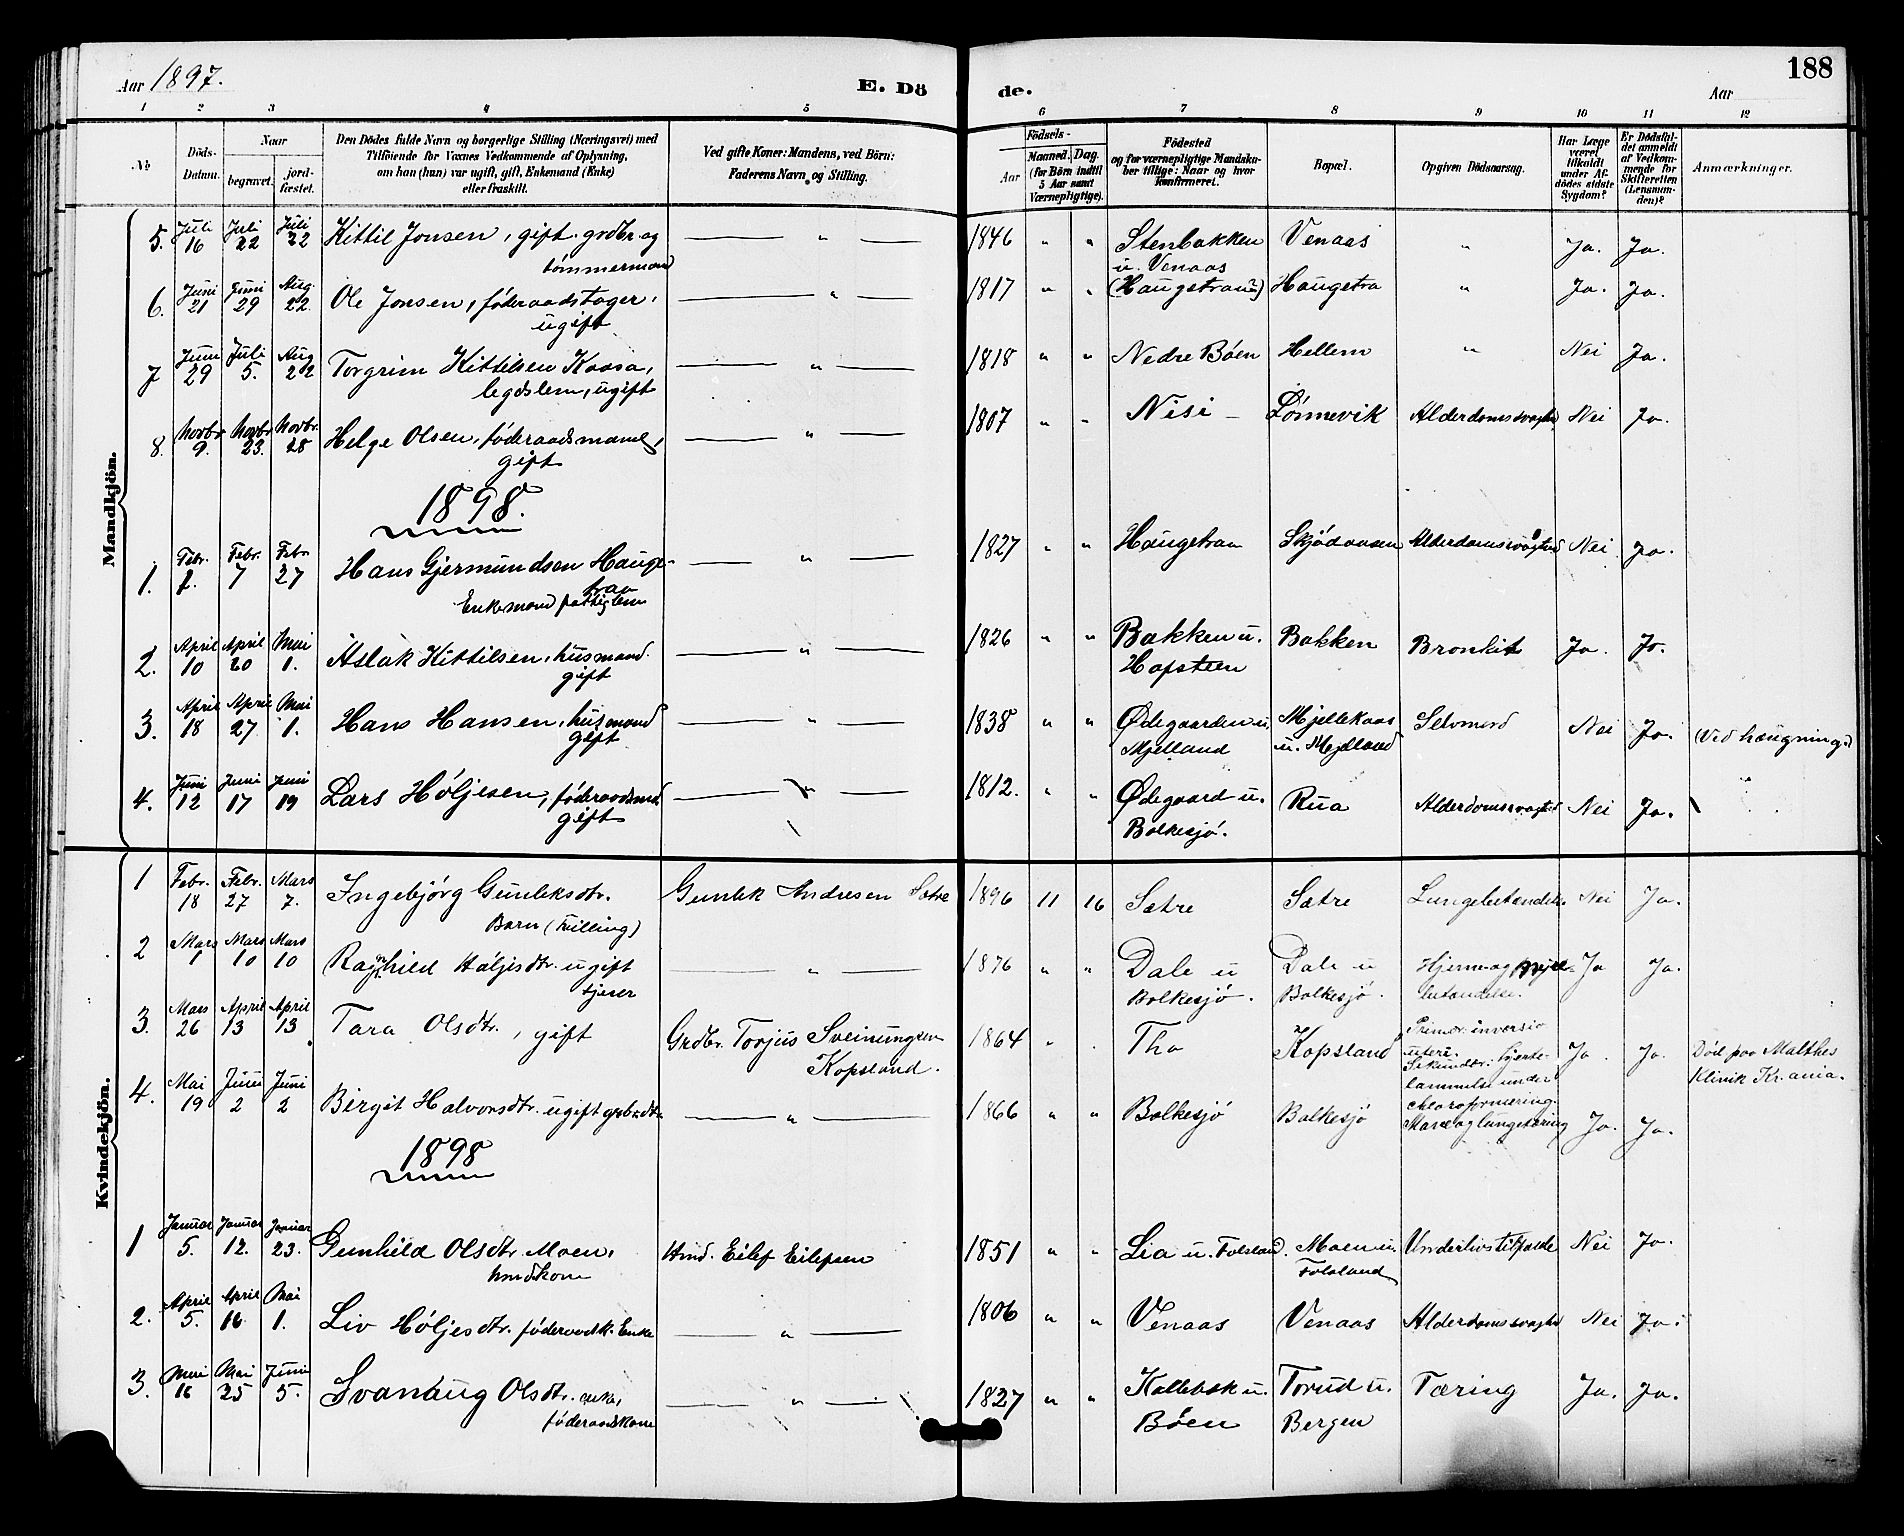 Aar 1897.
E. Dö
de.
Aar
188
1 2 3 4 5 6 7 8 9 10 11 12
No
Döds-
Datum.
Naar
begravet.
jord-
fæstet.
Den Dödes fulde Navn og borgerlige Stilling (Næringsvei) med
Tilföiende for Voxnes Vedkommende af Oplysning,
om han (hun) var ugift, gift, Enkemand (Enke)
eller fraskilt.
Ved gifte Koner: Mandens, ved Börn:
Faderens Navn og Stilling.
Födsels-
Aar
Maaned. Dag.
(for Börn indtil
5 Aar samt
Værnepligtige).
Födested
og for værnepligtige Mandska-
ber tillige: Naar og hvor
konfirmeret.
Bopæl.
Opgiven Dödsaarsag.
Har Læge
været
tilkaldt
under Af-
dödes sidste
Sygdom?
Er Dödsfal-
det anmeldt
af Vedkom-
mende for
Skifteretten
(Lensman-
den)?
Anmærkninger.
Mandkjön.
5. Juli 16 Juli 22 Juli 22 Kittil Jonsen, gift. grdbr. og — " — 1846 " " Stenbakken Venaas " Ja. Ja.
tömmermand u. Venaas
6. Juni 21 Juni 29 Aug. 22. Ole Jonsen, föderaadstager, — " — 1817 " " (Haugetraa) Haugetra " Ja. Ja.
ugift
7 Juni 29 Juli 5. Aug 22 Torgrim Kittilsen Kaasa, — " — 1818 " " Nedre Böen Hellem " Nei Ja.
legdslem, ugift
8. Novbr 9. Novbr 23. Novbr. 28 Helge Olsen, föderaadsmand, — " — 1807 " " Nisi — Lönnevik Alderdomssvaghed Nei Ja.
gift
1898.
1. Febr. 2. Febr. 7 Febr 27 Hans Gjermundsen Hauge- — " — 1827 " " Haugetraa Skjödaasen Alderdomssvaghed Nei Ja.
traa
Enkemand fattiglem
2. April 10 April 20 Mai 1. Aslak Kittilsen, husmand. — " — 1826 " " Bakken u. Bakken Bronkit Ja. Ja.
gift Hofsteen
3. April 18 April 27 Mai 1. Hans Hansen, husmand — " — 1838 " " Ødegaarden u. Mjellekaas Selvmord Nei Ja. (Ved hængning)
gift Mjelland u. Mjelland
4. Juni 12 Juni 17 Juni 19 Lars Höljesen, föderaadsmd. — " — 1812. " " Ødegaard u. Rua Alderdomssvaghed Nei Ja.
gift Bolkesjö.
Kvindekjön.
1 Febr. 18 Febr. 27 Mars 7. Ingebjörg Gunleksdtr. Gunlek Andresen Sætre 1896 11 16 Sætre Sætre Lungebetændelse Nei Ja.
Barn (Trilling)
2 Mars 1 Mars 10 Mars 10 Ragnhild Höljesdtr. ugift — " — 1876 " " Dale u Dale u Hjerne og Nyre- Ja Ja.
tjener Bolkesjö. Bolkesjö. betændelse.
3. Mars 26 April 13 April 13 Tara Olsdtr., gift Grdbr. Torjus Sveinungsen 1864 " " Tho Kopsland Primær: inversio Ja. Ja. Död paa Malthes
Kopsland. uteri. Klinik Kr.ania.
Sekundær: hjerte-
lammelse under
chloroformering.
4. Mai 19 Juni 2 Juni 2 Birgit Halvorsdtr. ugift grbrdtr. — " — 1866 " " Bolkesjö Bolkesjö Mave og lungetæring Ja. Ja.
1898
1 Januar 5. Januar 12. Januar 23. Gunhild Olsdtr. Moen, Hmd. Eilef Eilefsen 1851 " " Lia u. Folsland. Moen u. Underlivstilfælde Nei Ja.
hmdskone Folsland
2. April 5. April 16 Mai 1. Liv Höljesdtr. föderaadsk. Enke — " — 1806 " " Venaas Venaas Alderdomssvaghed Nei Ja.
3. Mai 16 Mai 25 Juni 5. Svanaug Olsdtr. enke, — " — 1827 " " Kallebæk u. Torud u. Tæring Ja. Ja.
föderaadskone Böen Bergen